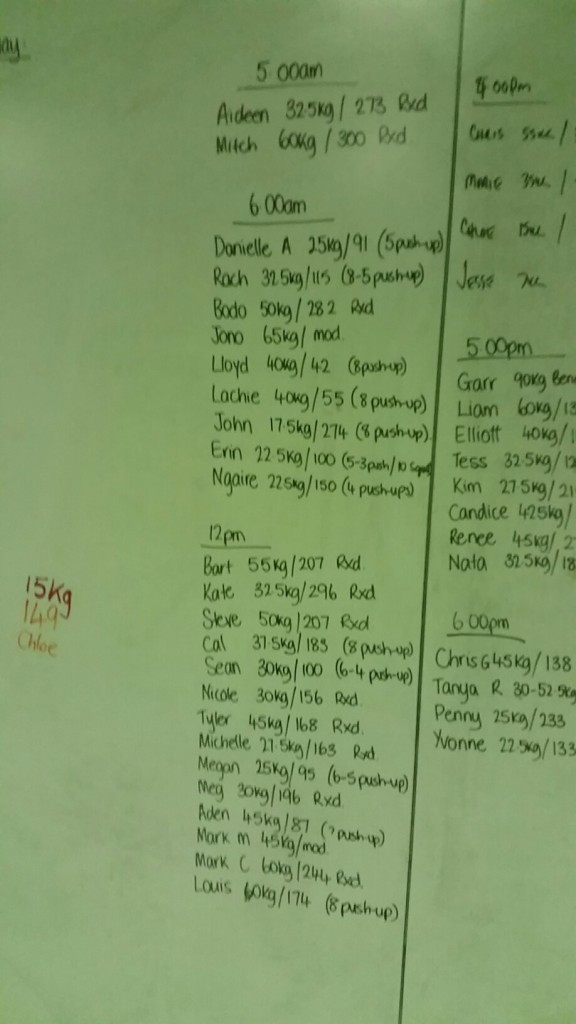 ay
15Kg
149
Chloe
5:00am
Aideen 32.5kg / 273 Rxd
Mitch 60kg / 300 Rxd
6:00am
Danielle A 25kg/91 (5push-up)
Rach 32.5kg/115 (8-5push-up)
Bodo 50kg/282 Rxd
Jono 65kg/mod.
Lloyd 40kg/42 (8push-up)
Lachie 40kg/55 (8push-up)
John 17.5kg/274 (8push-up)
Erin 22.5kg/100 (5-3push/10
Ngaire 22.5kg/150 (4 push-ups)
12pm
Bart 55kg/207 Rxd
Kate 32.5kg/296 Rxd
Steve 50kg/207 Rxd
Cal 37.5kg/183 (8push-up)
Sean 30kg/100 (6-4push-up)
Nicole 30kg/156 Rxd.
Tyler 45kg/168 Rxd.
Michelle 27.5kg/163 Rxd
Megan 25kg/95 (6-5push-up)
Meg 30kg/196 Rxd.
Aden 45kg/87 (?push-up)
Mark m 45kg/mod.
Mark C 60kg/244 Rxd.
Louis 60kg/174 (8push-up)
4:00pm
Chris /
Marie /
/
Jesse
5:00pm
Garr 90kg Ben
Liam 60kg/13
Elliott 40kg/1
Tess 32.5kg/12
Kim 27.5kg/21
Candice 42.5kg/
Renee 45kg/2
Nata 32.5kg/18
6:00pm
Chris G 45kg/138
Tanya R 30-52.5kg
Penny 25kg/233
Yvonne 22.5kg/133